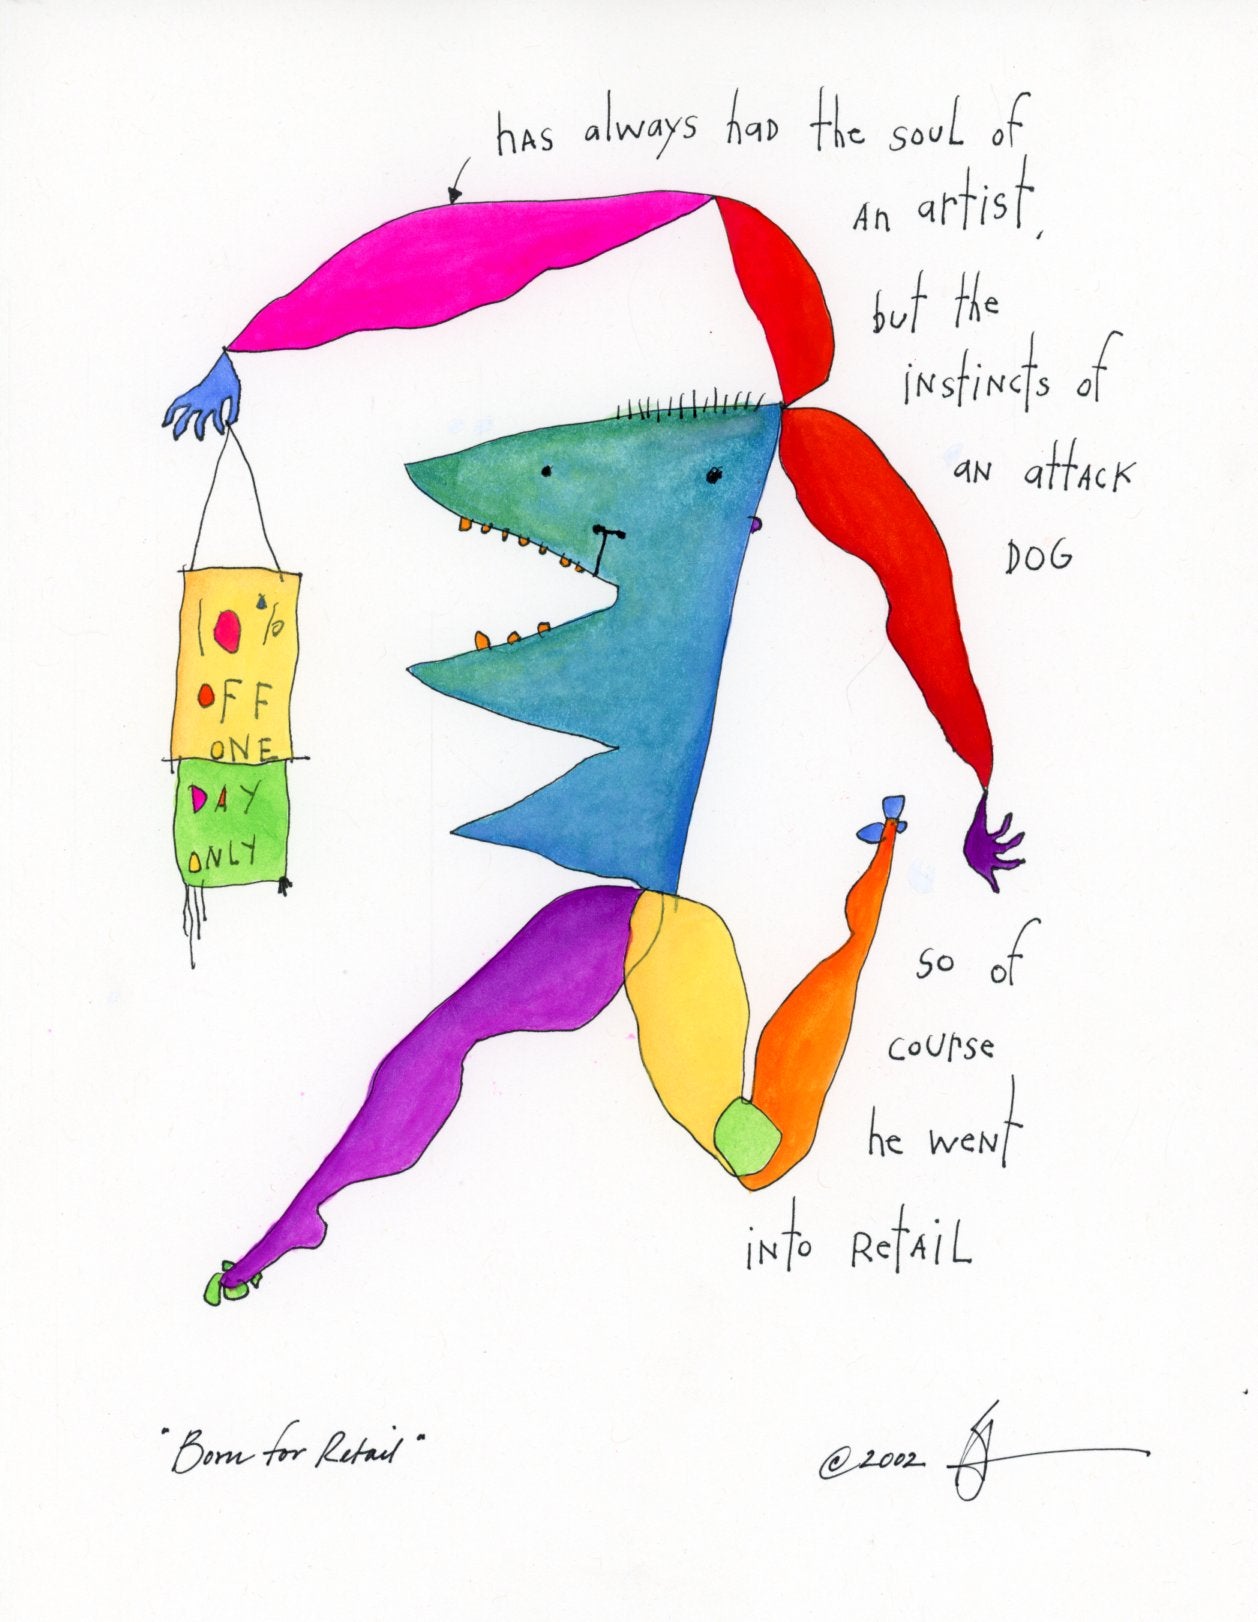 hAs always had the soul of
An artist,
but the
instincts of
an attack
DOG
10%
OFF
ONE
DAY
ONLY
so of
course
he went
into Retail
"Born for Retail"
©2002